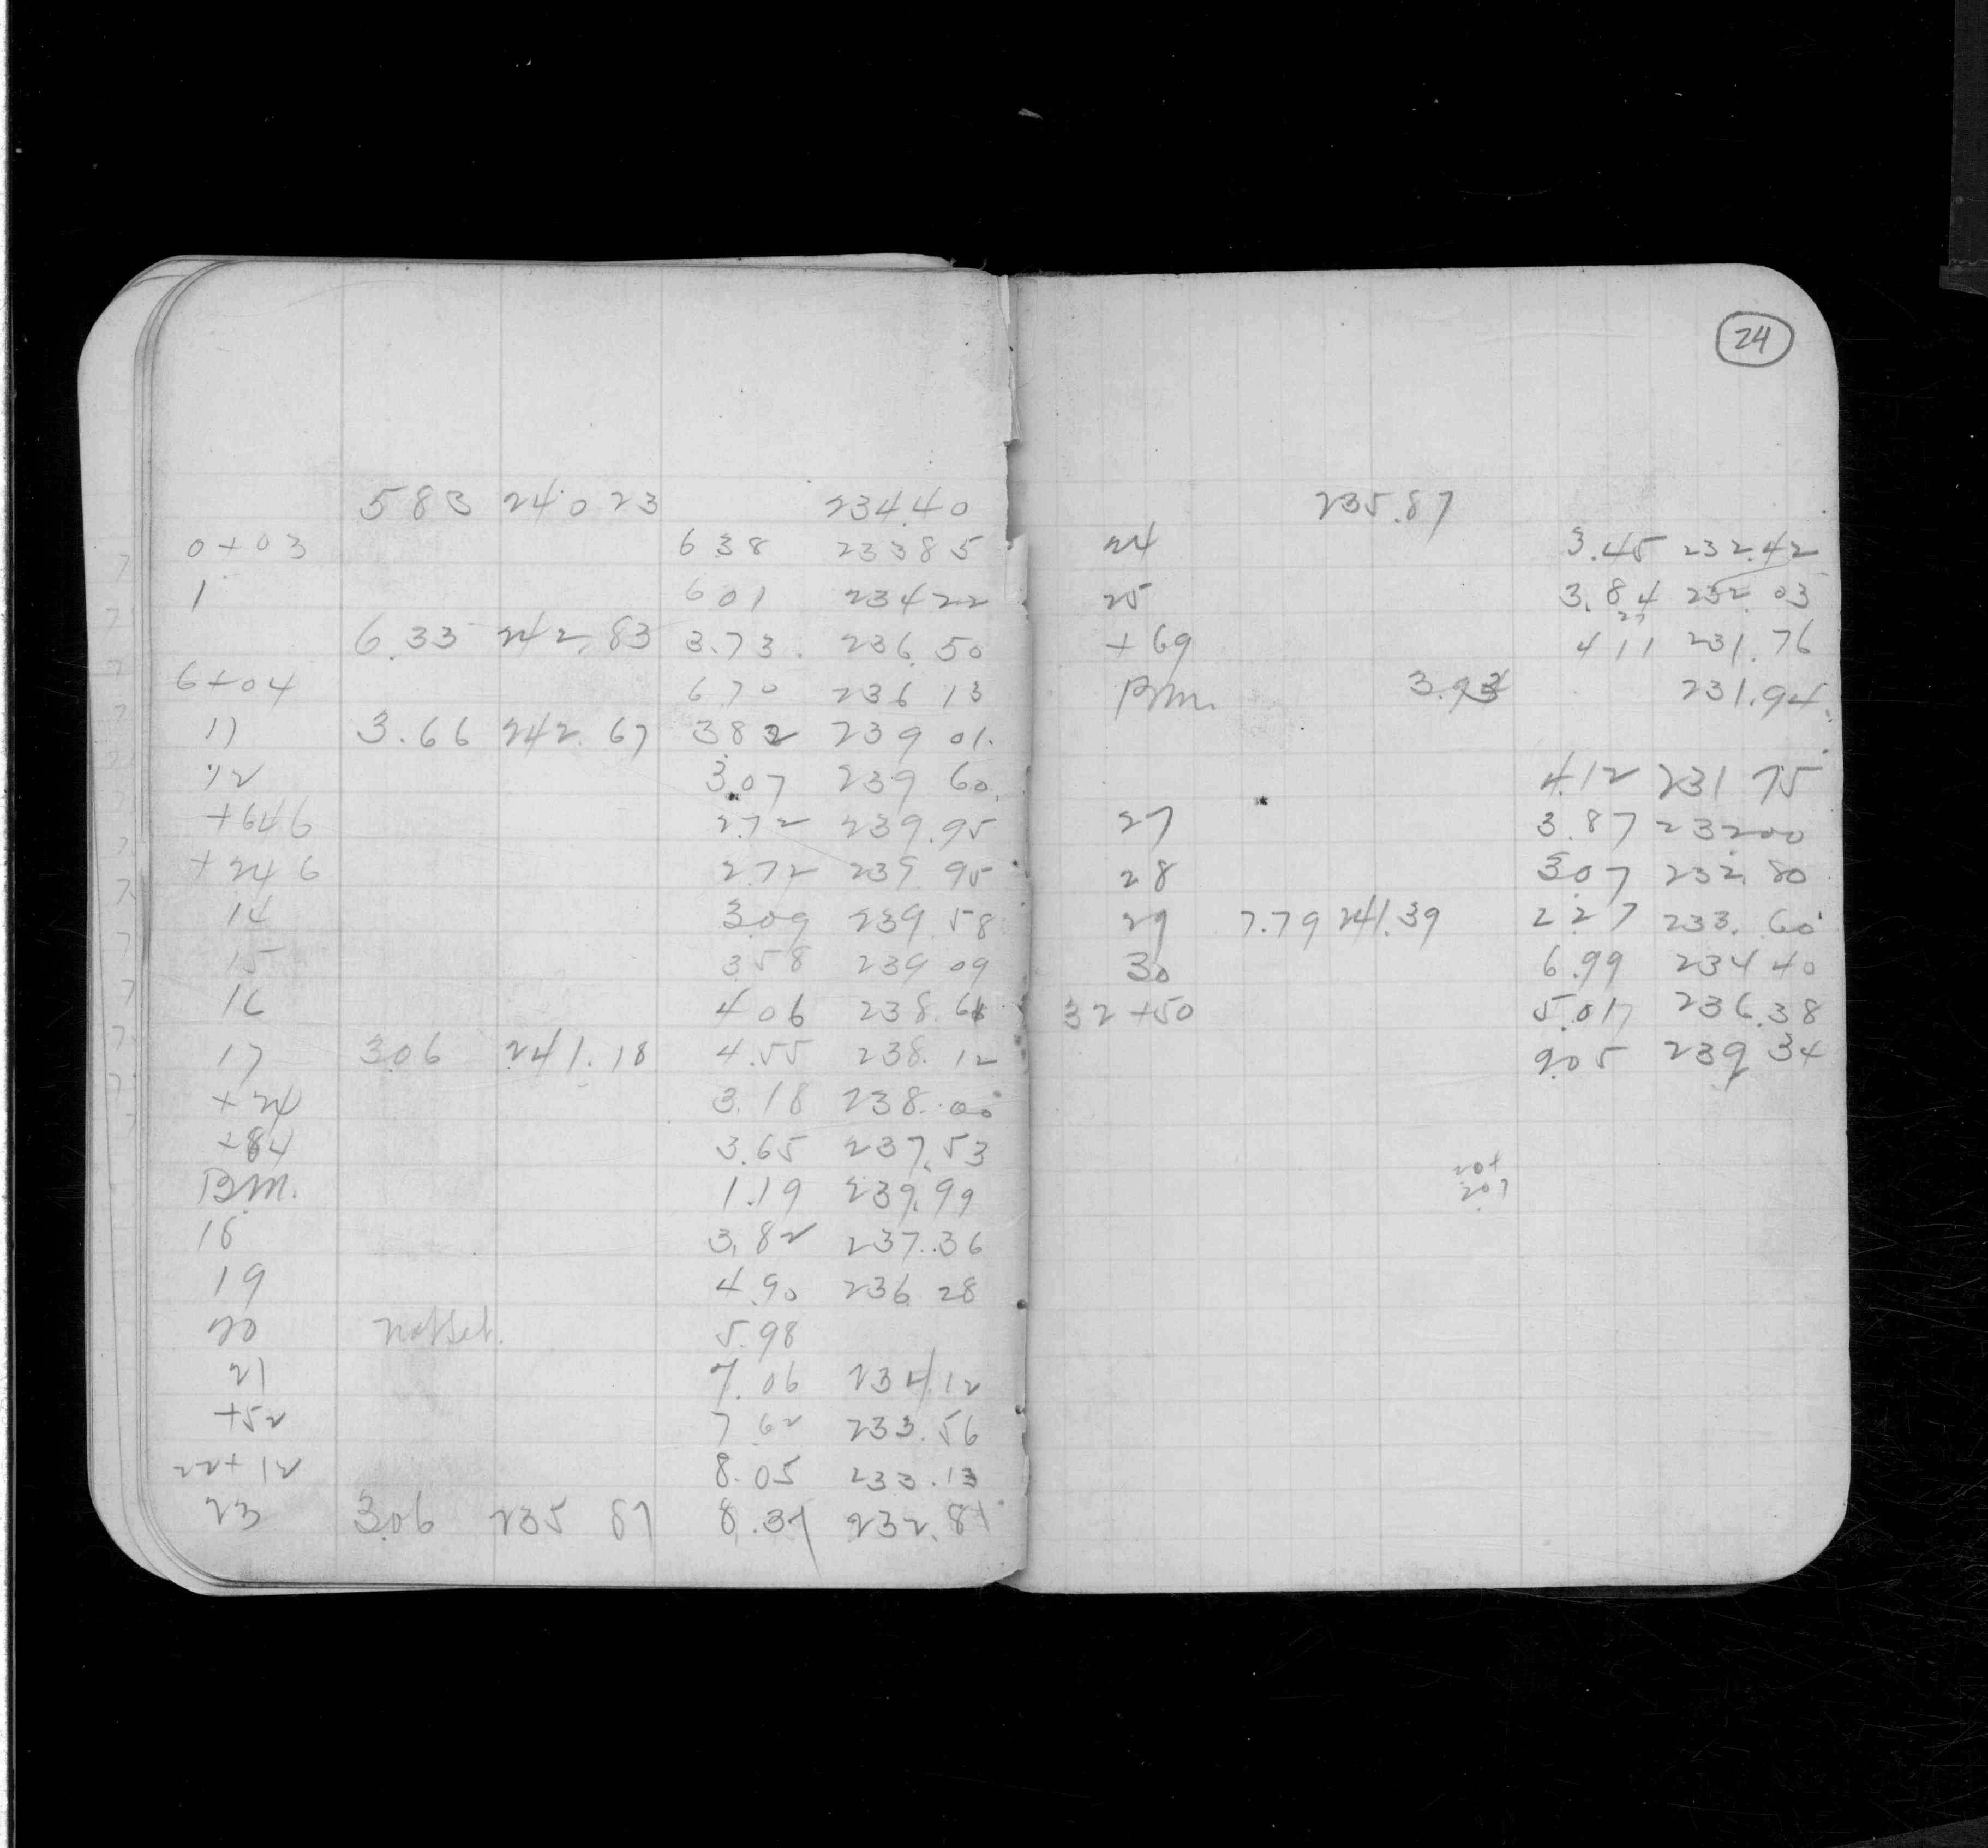 583 240 23 234.40
0+03 638 233 85
1 601 234 22
6.33 242.83 3.73. 236.50
6+04 6.70 236 13
11 3.66 242.67 382 239 01.
12 3.07 239 60.
+646 2.72 239.95
+246 2.72 239 95
14 3.09 239.58
15 3.58 239 09
16 4 06 238.61
17 3.06 241.18 4.55 238.12
+24 3.18 238.00
+84 3.65 237.53
B.M. 1.19 239.99
18 3.82 237.36
19 4.90 236 28
20 not set. 5.98
21 7.06 234.12
+52 7 62 233.56
22+12 8.05 233.13
23 3.06 235 87 8.37 232.81
24
235.87
24 3.45 232.42
25 3.84 232.03
27
+69 4 11 231.76
B.M. 231.94
4.12 231 75
27 3.87 232 00
28 3.07 232.80
29 7.79 241.39 2.27 233.60
30 6.99 234 40
32+50 5.01 236.38
2.05 239 34